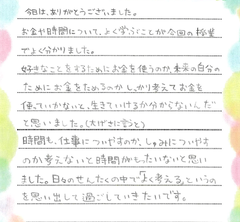 今日は、ありがとうございました。
お金や時間について、よく学ぶことが今回の授業
でよく分かりました。
好きなことをするためにお金を使うのか、未来の自分の
ためにお金をためるのか、しっかり考えてお金を
使っていかないと、生きていけるか分からないんだ
と思いました。(大げさに言うと)
時間も、仕事についやすのか、しゅみについやす
のか考えないと時間がもったいないと思い
ました。日々のせんたくの中で「よく考える」というの
を思い出して過ごしていきたいです。